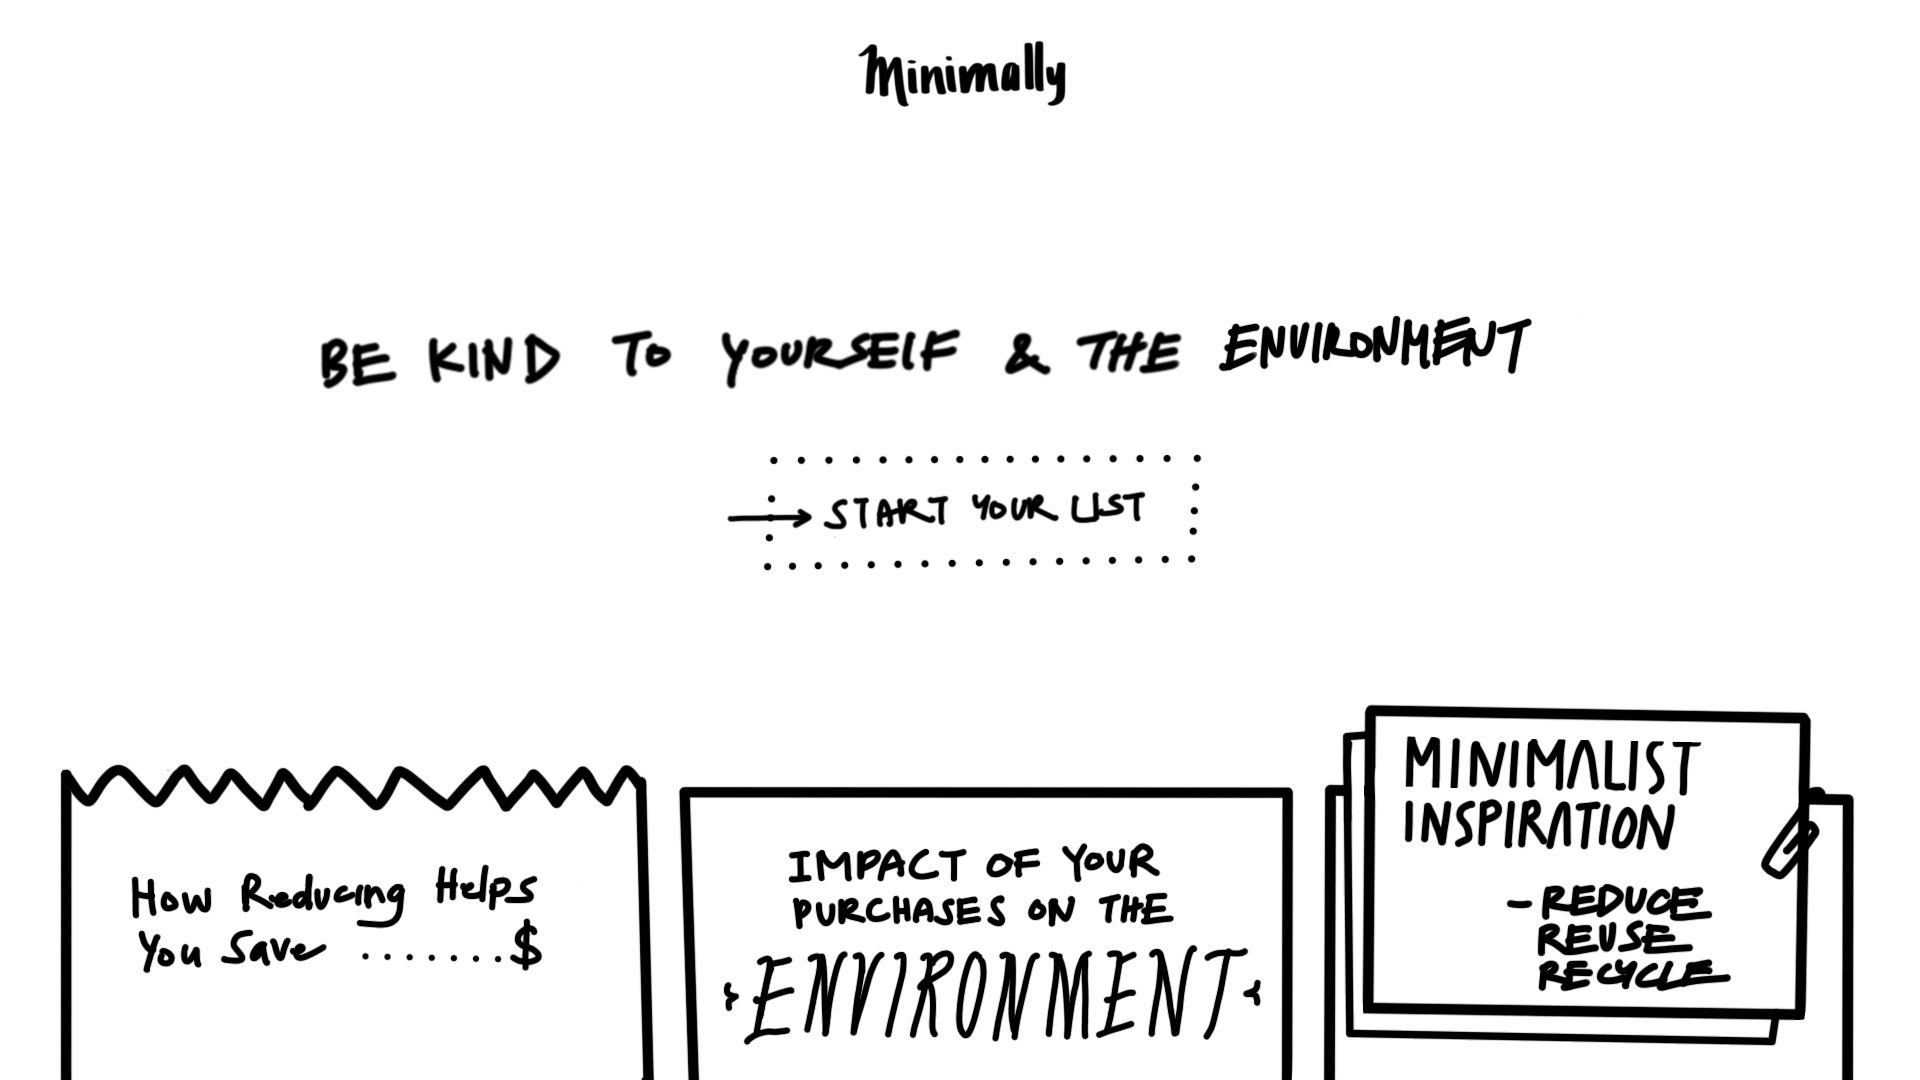 Minimally
BE KIND TO YOURSELF & THE ENVIRONMENT
START YOUR LIST
How Reducing Helps
You Save ........$
IMPACT OF YOUR
PURCHASES ON THE
ENVIRONMENT
MINIMALIST
INSPIRATION
- REDUCE
REUSE
RECYCLE